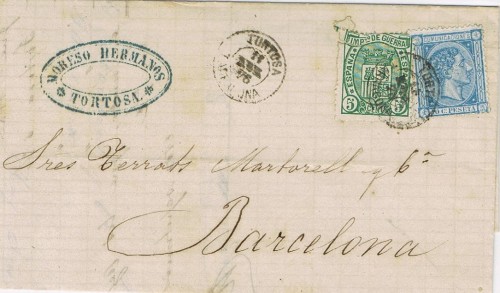 MORESO HERMANOS
TORTOSA
TORTOSA
11
75
IMPTO DE GUERRA
ESPAÑA
5 5
COMUNICACIONES
C. PESETA
Sres Terrats Martorell y Cª
Barcelona